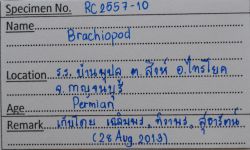 Specimen No. RC2557-10
Name
Brachiopod
Location ร.ร. บ้านพุปลู ต.สิงห์ อ.ไทรโยค
จ.กาญจนบุรี
Age Permian
Remark เก็บโดย เฉลิมพร, ทิวาพร, สุธารัตน์
(28 Aug 2013)